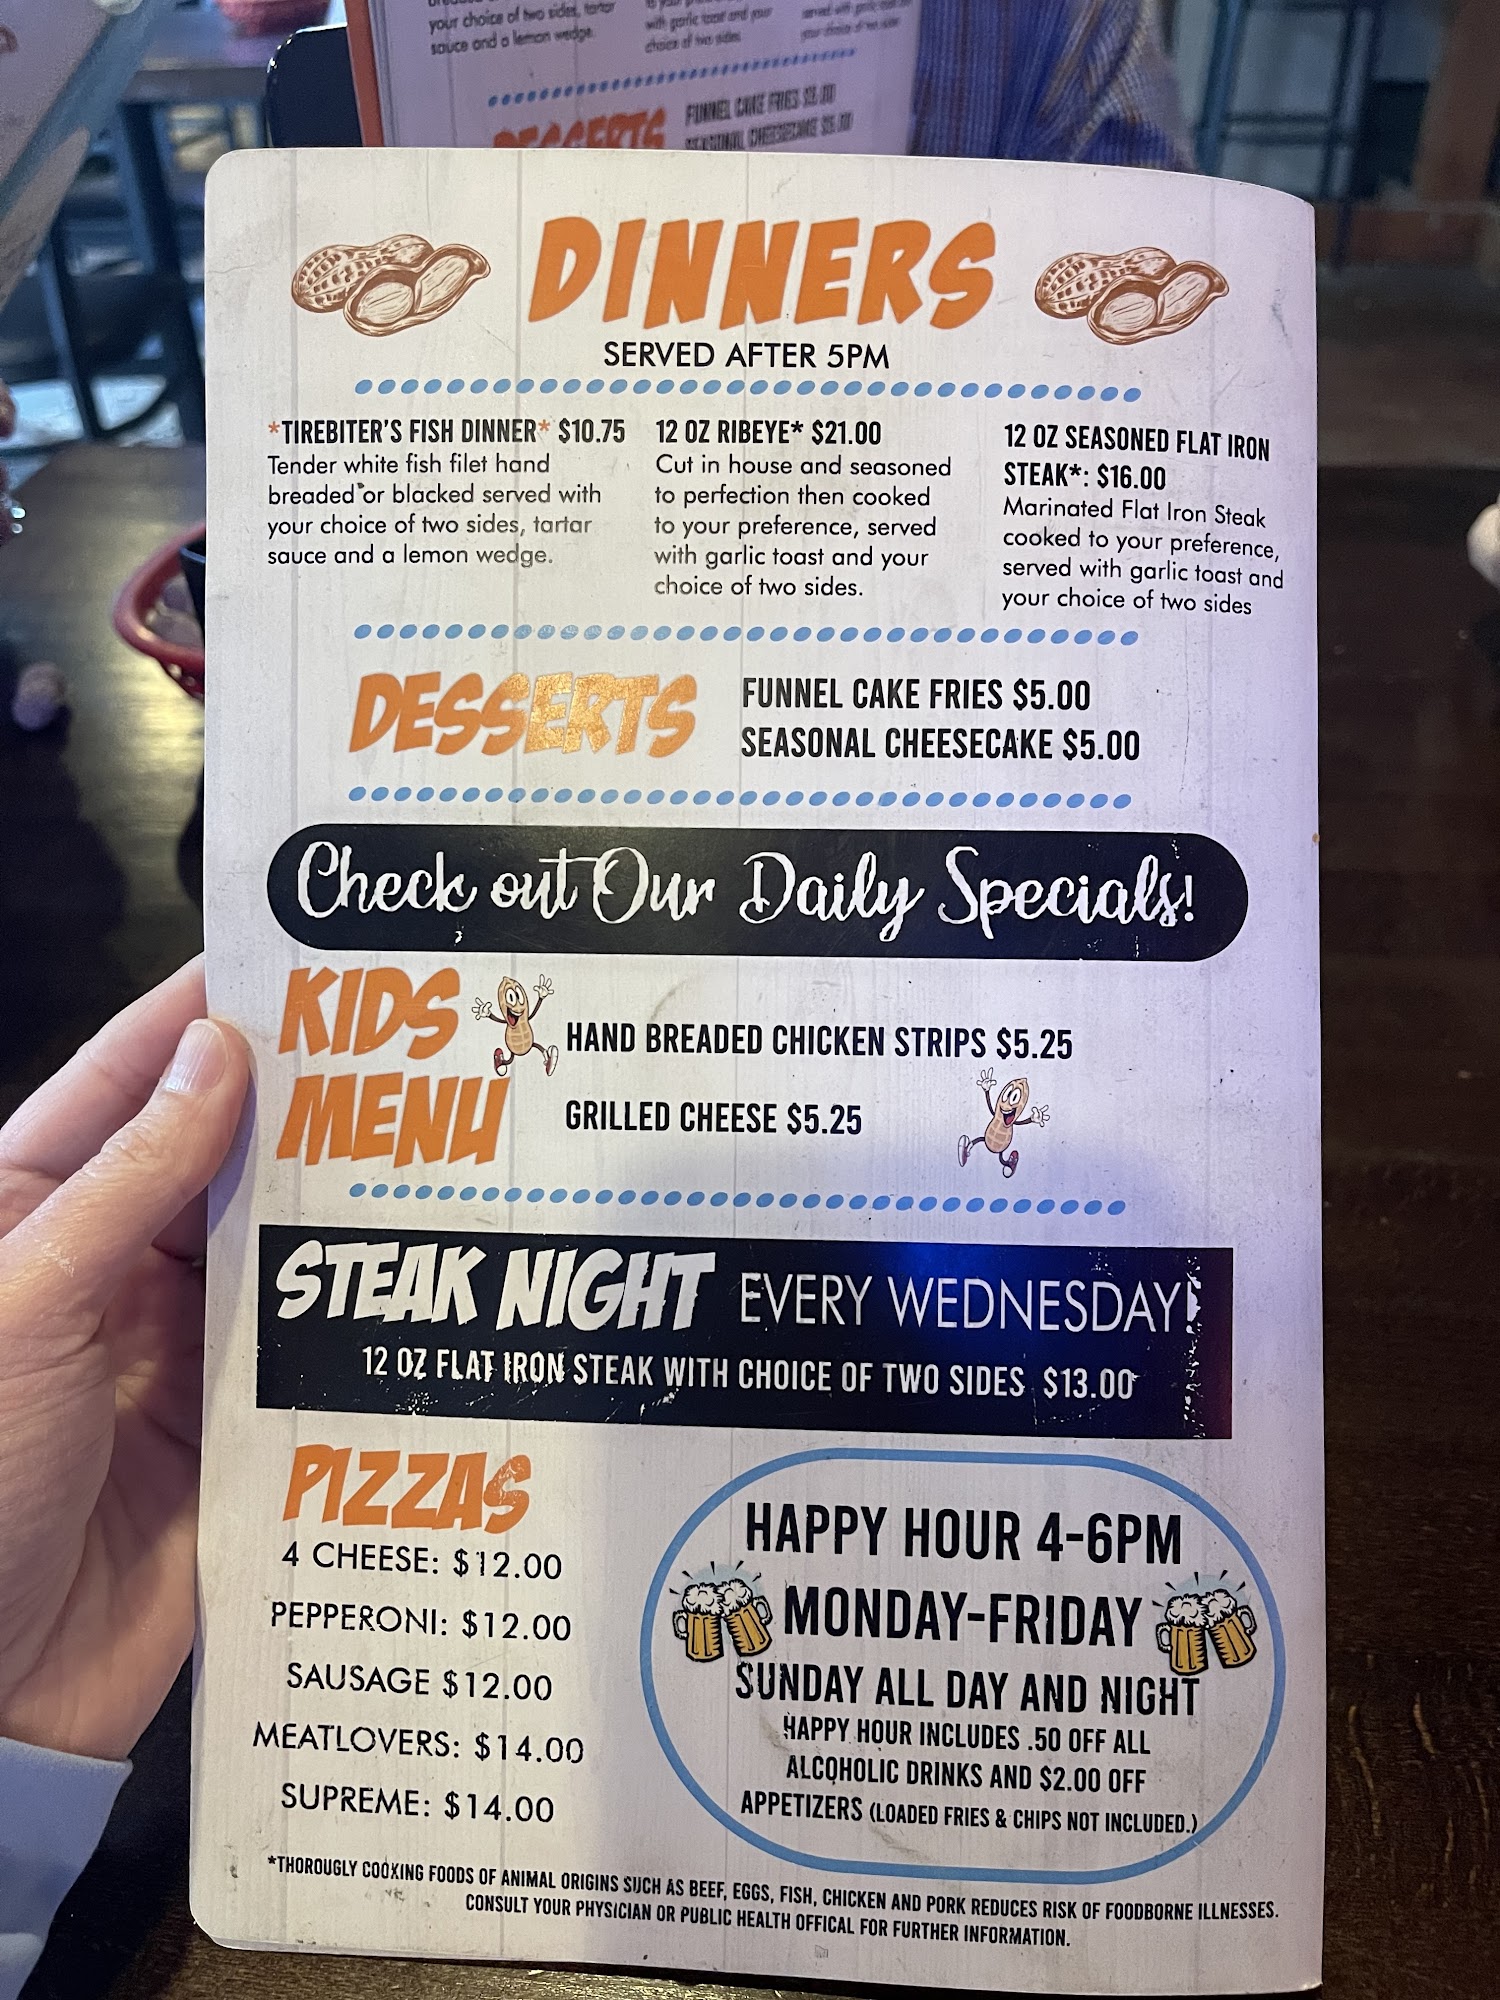 your choice of two sides, tartar
sauce and a lemon wedge.
with garlic toast and your
choice of two sides.
served with garlic toast and
your choice of two sides
DESSERTS
FUNNEL CAKE FRIES $5.00
SEASONAL CHEESECAKE $5.00
DINNERS
SERVED AFTER 5PM
*TIREBITER'S FISH DINNER* $10.75
Tender white fish filet hand
breaded or blacked served with
your choice of two sides, tartar
sauce and a lemon wedge.
12 OZ RIBEYE* $21.00
Cut in house and seasoned
to perfection then cooked
to your preference, served
with garlic toast and your
choice of two sides.
12 OZ SEASONED FLAT IRON
STEAK*: $16.00
Marinated Flat Iron Steak
cooked to your preference,
served with garlic toast and
your choice of two sides
DESSERTS
FUNNEL CAKE FRIES $5.00
SEASONAL CHEESECAKE $5.00
Check out Our Daily Specials!
KIDS
MENU
HAND BREADED CHICKEN STRIPS $5.25
GRILLED CHEESE $5.25
STEAK NIGHT EVERY WEDNESDAY!
12 OZ FLAT IRON STEAK WITH CHOICE OF TWO SIDES $13.00
PIZZAS
4 CHEESE: $12.00
PEPPERONI: $12.00
SAUSAGE $12.00
MEATLOVERS: $14.00
SUPREME: $14.00
HAPPY HOUR 4-6PM
MONDAY-FRIDAY
SUNDAY ALL DAY AND NIGHT
HAPPY HOUR INCLUDES .50 OFF ALL
ALCOHOLIC DRINKS AND $2.00 OFF
APPETIZERS (LOADED FRIES & CHIPS NOT INCLUDED.)
*THOROUGLY COOKING FOODS OF ANIMAL ORIGINS SUCH AS BEEF, EGGS, FISH, CHICKEN AND PORK REDUCES RISK OF FOODBORNE ILLNESSES.
CONSULT YOUR PHYSICIAN OR PUBLIC HEALTH OFFICAL FOR FURTHER INFORMATION.